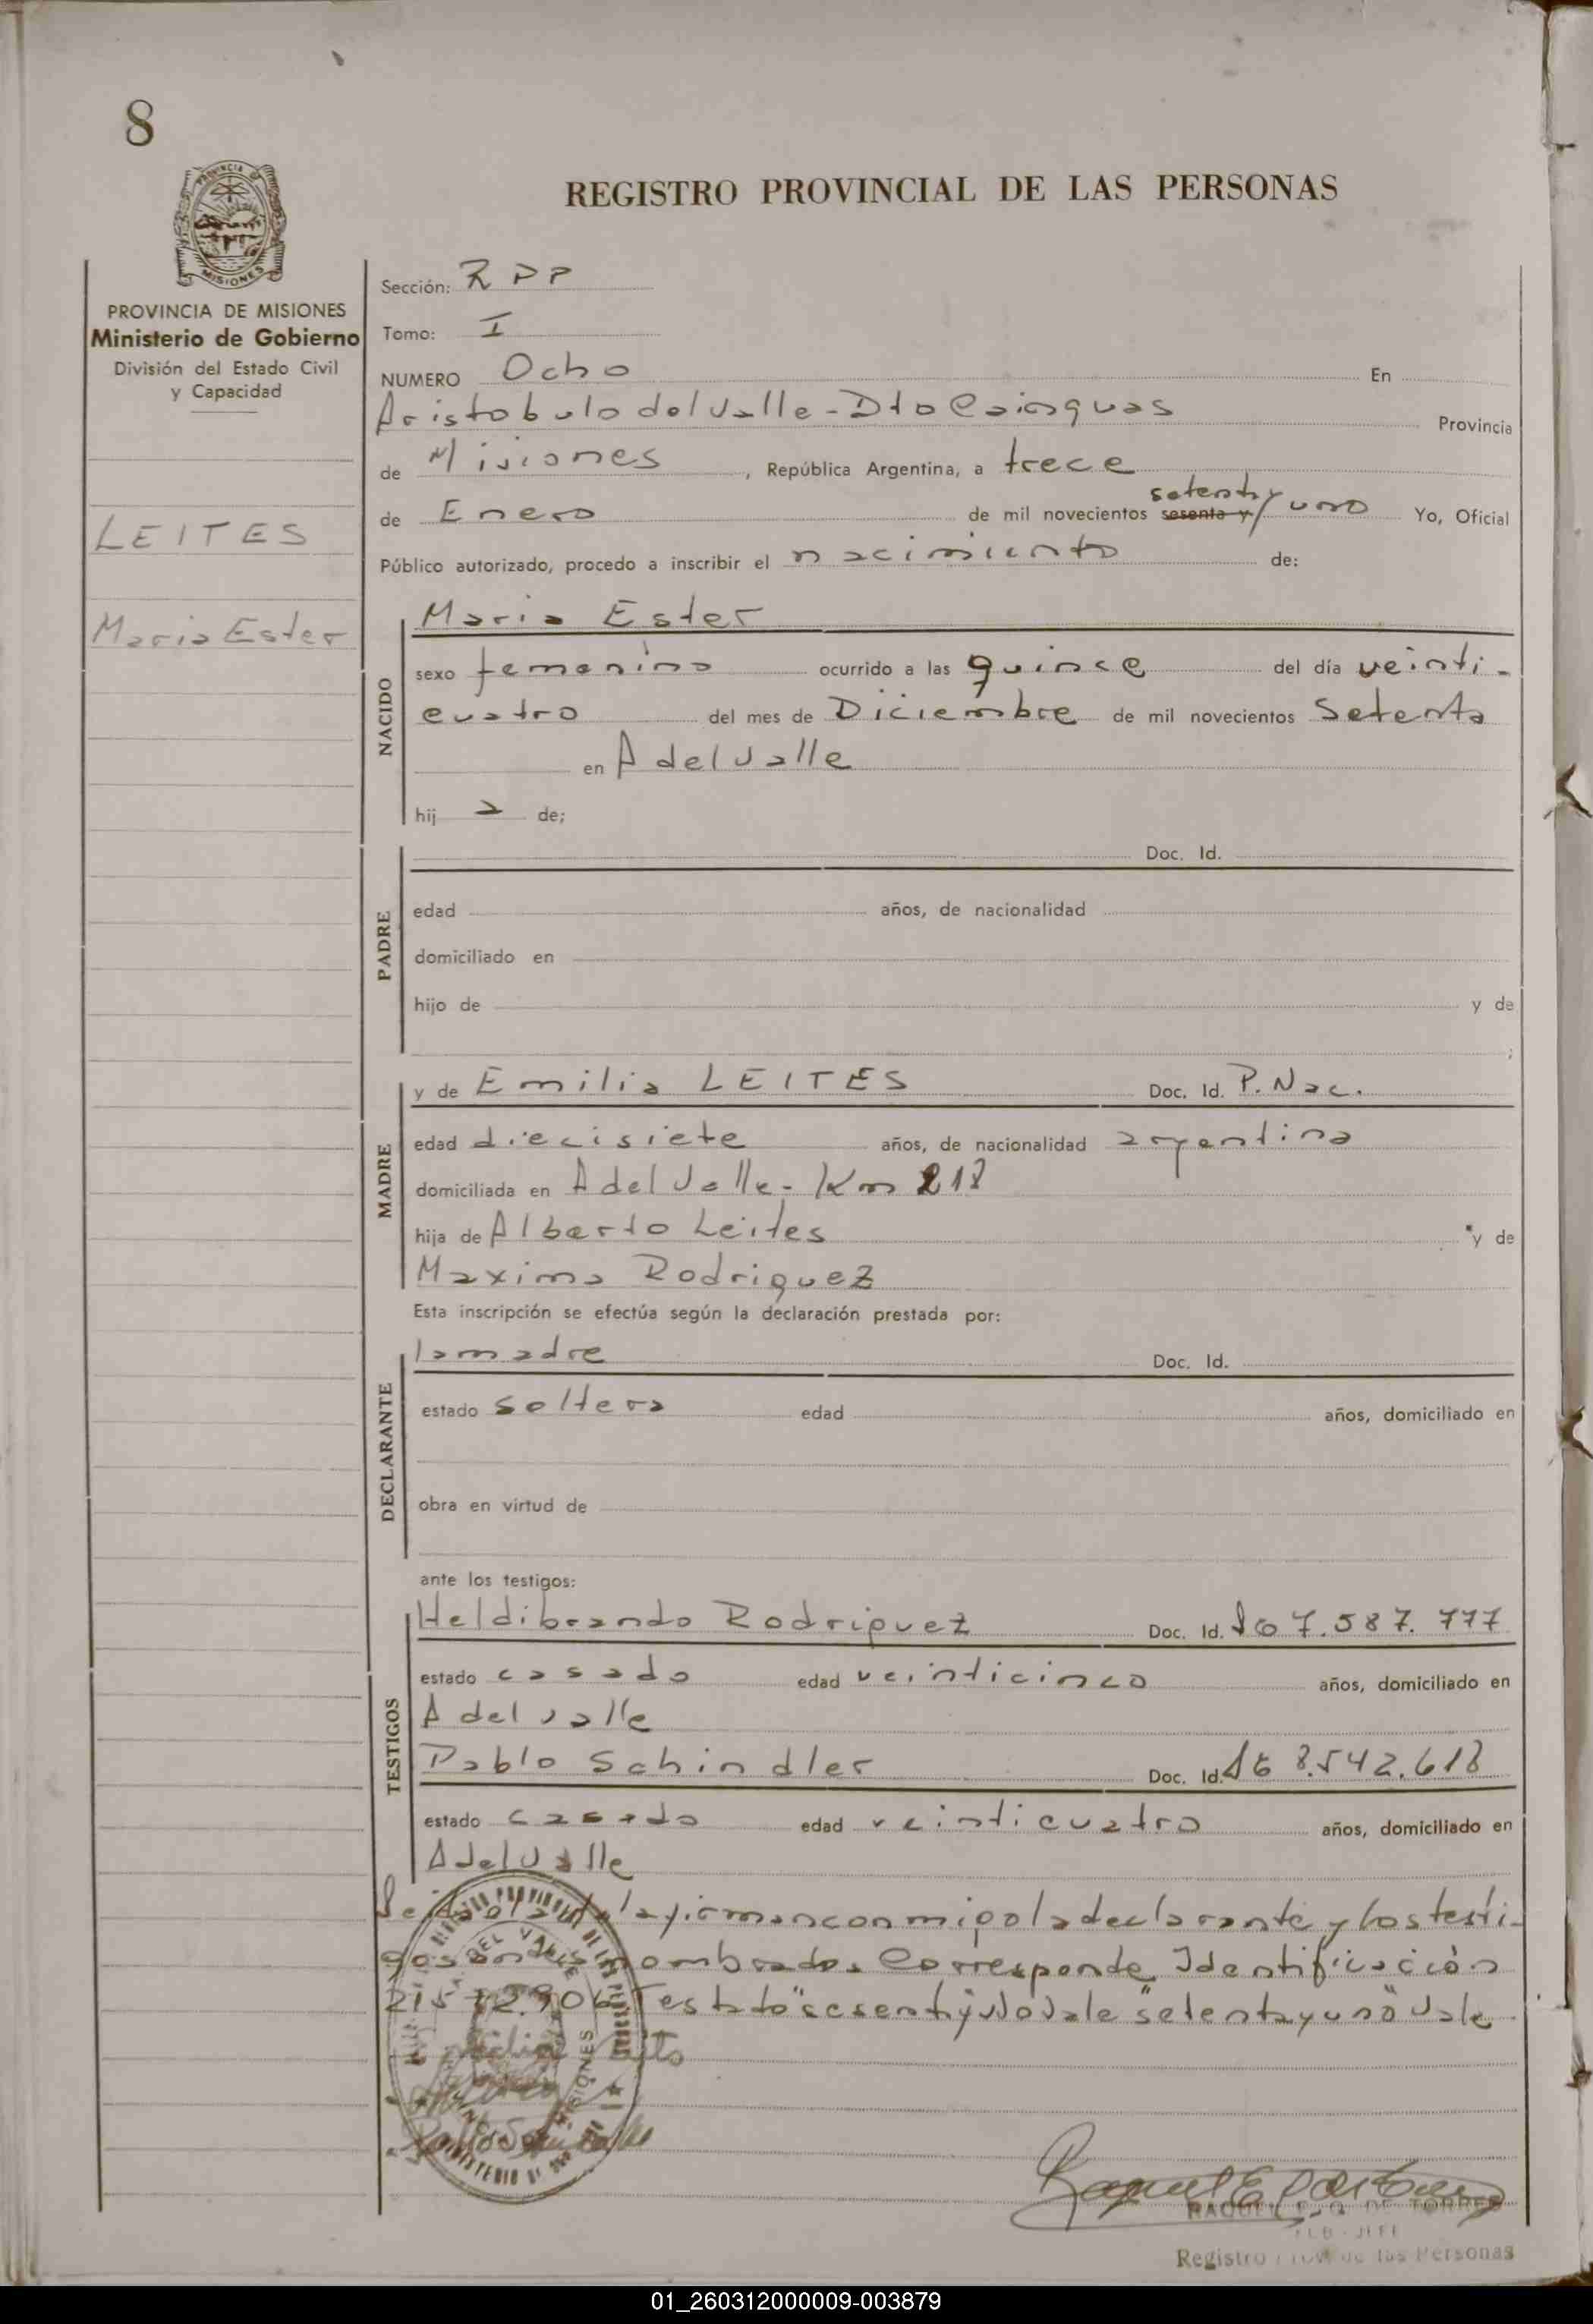 8
REGISTRO PROVINCIAL DE LAS PERSONAS
PROVINCIA DE MISIONES
Ministerio de Gobierno
División del Estado Civil
y Capacidad
LEITES
Maria Ester
Sección: RPP
Tomo: I
NUMERO Ocho En
Aristobulo del Valle - Dto Cainguas Provincia
de Misiones, República Argentina, a trece
de Enero de mil novecientos sesenta y / setenta y uno Yo, Oficial
Público autorizado, procedo a inscribir el nacimiento de:
NACIDO
Maria Ester
sexo femenino ocurrido a las quince del día veinti-
cuatro del mes de Diciembre de mil novecientos Setenta
en A del Valle
hij a de;
PADRE
Doc. Id.
edad años, de nacionalidad
domiciliado en
hijo de y de
;
MADRE
y de Emilia LEITES Doc. Id. P. Nac.
edad diecisiete años, de nacionalidad argentina
domiciliada en A del Valle - Km 218
hija de Alberto Leites y de
Maxima Rodriguez
Esta inscripción se efectúa según la declaración prestada por:
DECLARANTE
la madre Doc. Id.
estado soltera edad años, domiciliado en
obra en virtud de
ante los testigos:
TESTIGOS
Heldibrando Rodriguez Doc. Id. 7.587.777
estado casado edad veinticinco años, domiciliado en
A del Valle
Pablo Schindler Doc. Id. 8.542.618
estado casado edad veinticuatro años, domiciliado en
A del Valle
la firman conmigo la declarante y los testi-
gos nombrados Corresponde Identificación
Testado "sesenta y" No Vale "setenta y uno" Vale
RAQUEL E. O. DE TORRES
Registro Prov. de las Personas
01_260312000009-003879